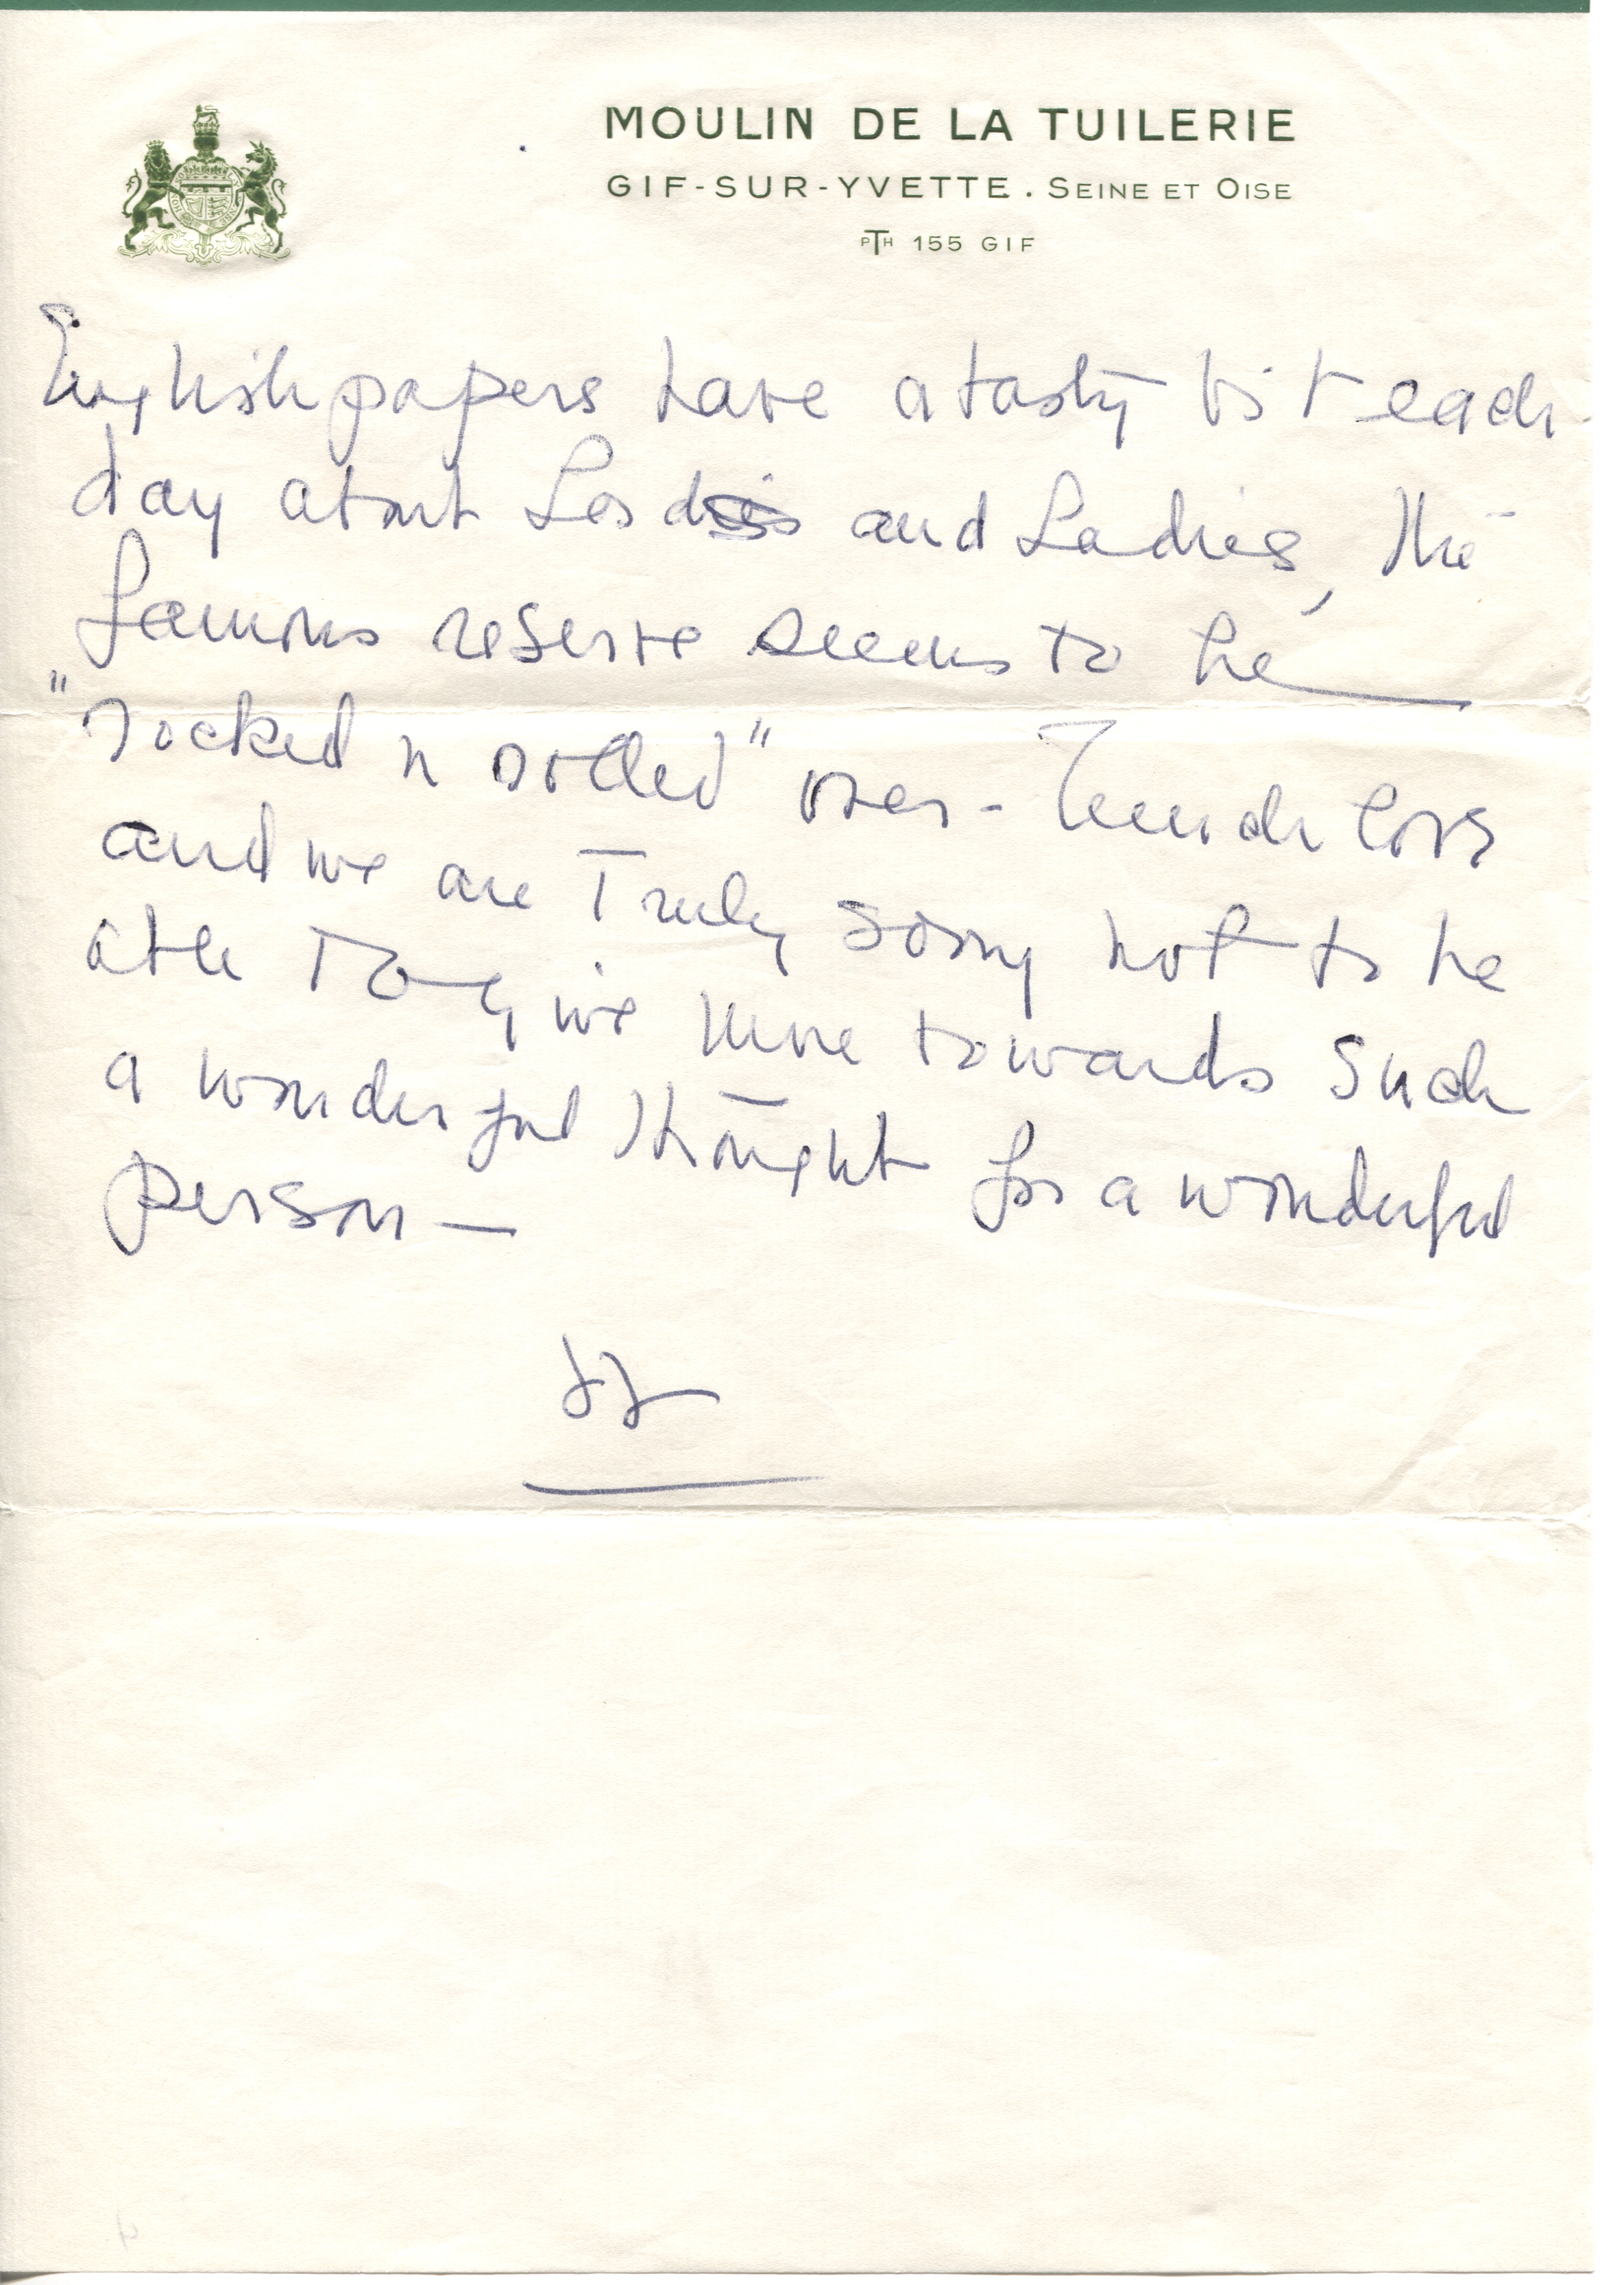 MOULIN DE LA TUILERIE
GIF-SUR-YVETTE. SEINE ET OISE
PTH 155 GIF
English papers have a tasty bit each
day about Lords and Ladies, The
famous reserve seems to be
"rocked n rolled" over - Much love
and we are Truly sorry not to be
able To give more towards such
a wonderful thought for a wonderful
person —